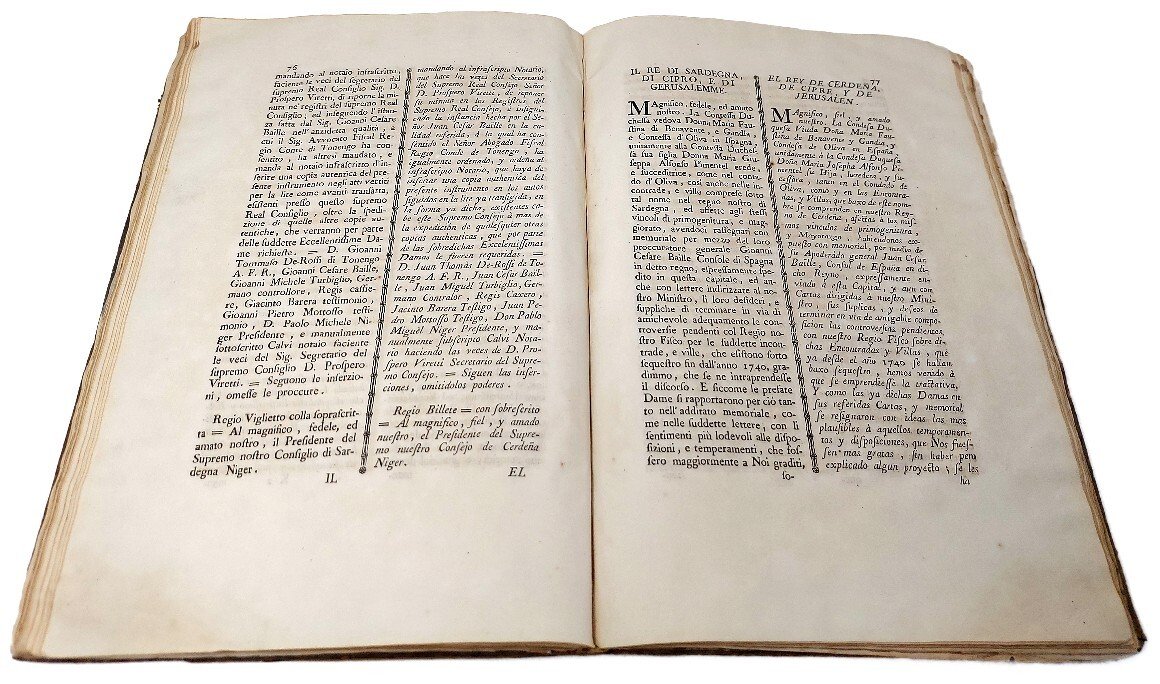 76
mandando al notaio infrascritto,
faciente le veci del segretario del
supremo Real Consiglio Sig. D.
Prospero Viretti, di riporne la mi-
nuta ne' registri del supremo Real
Consiglio; ed inseguendo l'istan-
za fatta dal Sig. Gioanni Cesare
Baille nell'anzidetta qualità, a
cui il Sig. Avvocato Fiscal Re-
gio Conte di Tonengo ha con-
sentito, ha altresì mandato, e
manda al notaio infrascritto d'in-
serire una copia autentica del pre-
sente instrumento negli atti vertiti
per la lite come avanti transatta,
esistenti presso questo supremo
Real Consiglio, oltre la spedi-
zione di quelle altre copie au-
tentiche, che verranno per parte
delle suddette Eccellentissime Da-
me richieste. = D. Gioanni
Tommaso De-Rossi di Tonengo
A. F. R., Gioanni Cesare Baille,
Gioanni Michele Turbiglio, Ger-
mano controllore, Regis cassie-
re, Giacinto Barera testimonio,
Gioanni Pietro Mottosso testi-
monio, D. Paolo Michele Ni-
ger Presidente, e manualmente
sottoscritto Calvi notaio faciente
le veci del Sig. Segretario del
supremo Consiglio D. Prospero
Viretti. = Seguono le inserzio-
ni, omesse le proccure.
Regio Viglietto colla soprascrit-
ta = Al magnifico, fedele, ed
amato nostro, il Presidente del
Supremo nostro Consiglio di Sar-
degna Niger.
IL
mandando al infrascripto Notario,
que hace las veces del Secretario
del Supremo Real Consejo Señor
D. Prospero Viretti, de reponer
su minuta en las Registros del
Supremo Real Consejo, è insiguien-
do la instancia hecha por el Se-
ñor Juan Cesar Baille en la ca-
lidad referida, à la qual ha con-
sentido el Señor Abogado Fiscal
Regio Conde de Tonengo, ha
igualmente ordenado, y ordena al
infrascripto Notario, que haya de
insertar una copia authentica del
presente instrumento en los autos
seguidos en la lite ya transigida, en
la forma ya dicha, existentes ca-
be este Supremo Consejo à mas de
la expedición de qualesquier otras
copias authenticas, que por parte
de las sobredichas Excelentissimas
Damas le fueren requeridas. =
D. Juan Thomás De-Rossi de To-
nengo A. F. R., Juan Cesar Bail-
le, Juan Miguel Turbiglio, Ger-
mano Contralor, Regis Caxero,
Jacinto Barera Testigo, Juan Pe-
dro Mottosso Testigo, Don Pablo
Miguél Niger Presidente, y ma-
nualmente subscripto Calvi Nota-
rio haciendo las veces de D. Pro-
spero Viretti Secretario del Supre-
mo Consejo. = Siguen las inser-
ciones, omitidolos poderes.
Regio Billete = con sobreserito
= Al magnifico, fiel, y amado
nuestro, el Presidente del Supre-
mo nuestro Consejo de Cerdeña
Niger.
EL
IL RE DI SARDEGNA,
DI CIPRO, E DI
GERUSALEMME.
MAgnifico, fedele, ed amato
nostro. La Contessa Du-
chessa vedova Donna Maria Fau-
stina di Benavente, e Gandia,
e Contessa d'Oliva in Ispagna,
unitamente alla Contessa Duches-
sa sua figlia Donna Maria Giu-
seppa Alfonso Pimentel erede,
e succeditrice, come nel conta-
do d'Oliva, così anche nelle in-
contrade, e ville comprese sotto
tal nome nel regno nostro di
Sardegna, ed affette agli stessi
vincoli di primogenitura, e mag-
giorato, avendoci rassegnati con
memoriale per mezzo del loro
procuratore generale Gioanni
Cesare Baille Console di Spagna
in detto regno, espressamente spe-
dito in questa capitale, ed an-
che con lettere indirizzate al no-
stro Ministro, li loro desideri, e
suppliche di terminare in via di
amichevole adequamento le con-
troversie pendenti col Regio nostro
Fisco per le suddette incon-
trade, e ville, che esistono sotto
sequestro fin dall'anno 1740, gra-
dimmo, che se ne intraprendesse
il discorso. E siccome le prefate
Dame si rapportarono per ciò tan-
to nell'additato memoriale, co-
me nelle suddette lettere, con li
sentimenti più lodevoli alle dispo-
sizioni, e temperamenti, che fos-
sero maggiormente a Noi graditi,
so-
77
EL REY DE CERDEÑA,
DE CIPRE, Y DE
JERUSALEN.
MAgnifico, fiel, y amado
nuestro. La Condesa Du-
quesa Viuda Doña Maria Fau-
stina de Benavente y Gandia, y
Condesa de Oliva en España,
untdamente à la Condesa Duquesa
Doña Maria Josepha Alfonso Pi-
mentel su Hija, heredera, y su-
cesora, tanto en el Condado de
Oliva, como y en las Encontra-
das, y Villas, que baxo de este nom-
bre se comprenden en nuestro Rey-
no de Cerdeña, afectas à los mis-
mos vinculos de primogenitura,
y Mayorazgo, habiendonos ex-
puesto con memorial, por medio de
su Apoderado general Juan Cesar
Baille, Consul de España en di-
cho Reyno, expresamente en-
viado à esta Capital, y aun con
Cartas dirigidas à nuestro Mini-
stro, sus suplicas, y deseos de
terminar en via de amigable compo-
sicion las controversias pendientes
con nuestro Regio Fisco sobre di-
chas Encontradas y Villas, que
ya desde el año 1740 se hallan
baxo sequestro, hemos venido à
que se emprendiesse la tractativa,
Y como las ya dichas Damas en
sus referidas Cartas, y memorial
se resignaron con ideas las mas
plausibles à aquellos temporamen-
tos, y disposiciones, que Nos fues-
sen mas gratas, sin haber pero
explicado algun proyecto; se les
ha